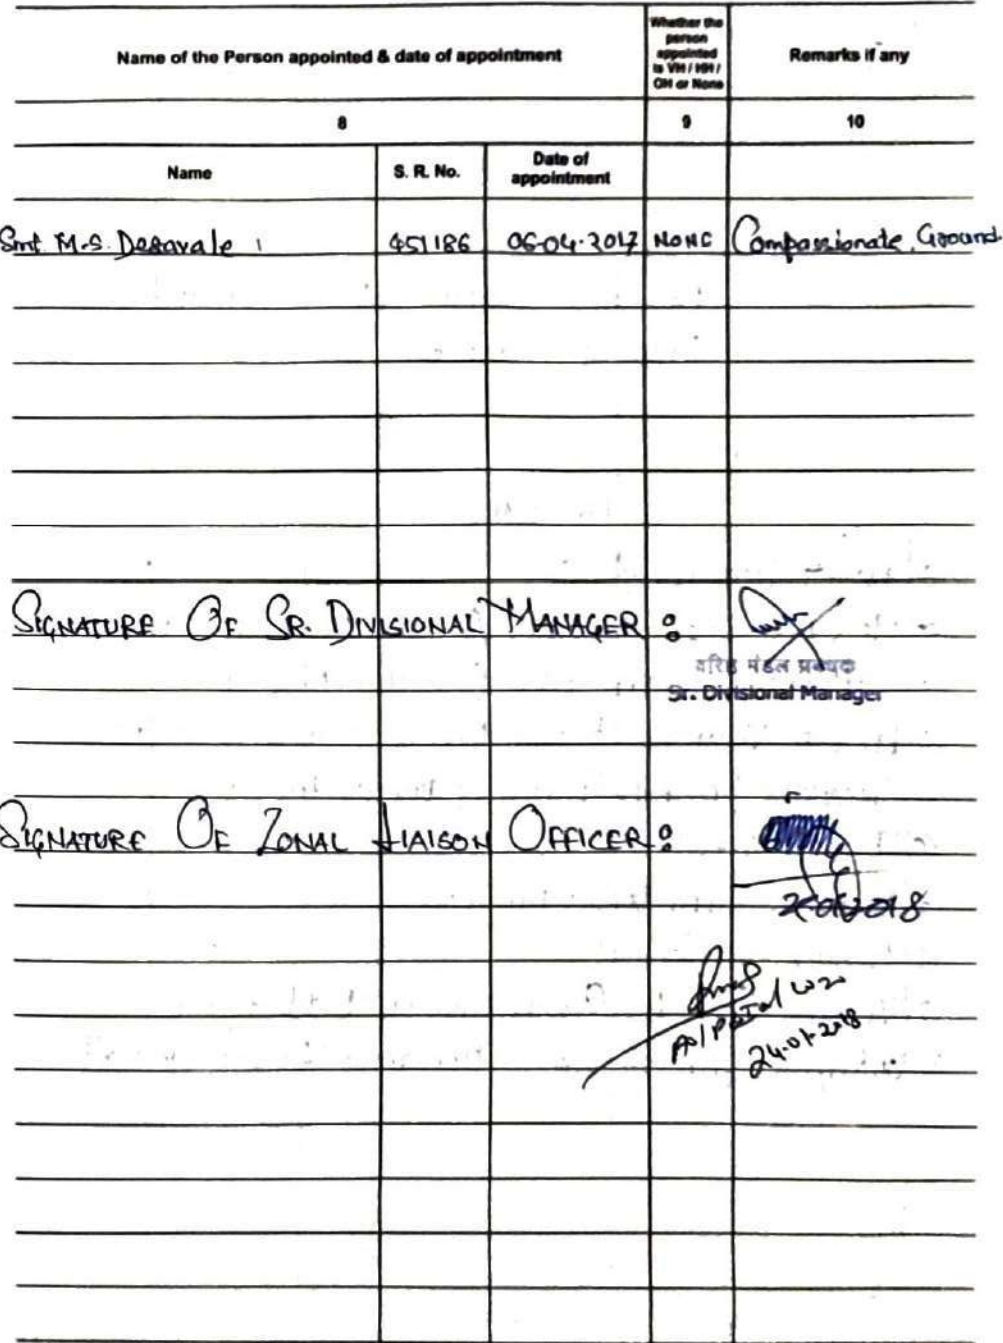 Name of the Person appointed & date of appointment
Whether the
person
appointed
is VH / HH /
OH or None
Remarks if any
8 9 10
Name S. R. No. Date of
appointment
Smt M.S. Desavale 451186 06-04-2017 NONE Compassionate Ground.
SIGNATURE OF SR. DIVISIONAL MANAGER :
वरिष्ठ मंडल प्रबंधक
Sr. Divisional Manager
SIGNATURE OF ZONAL LIAISON OFFICER :
24-01-2018